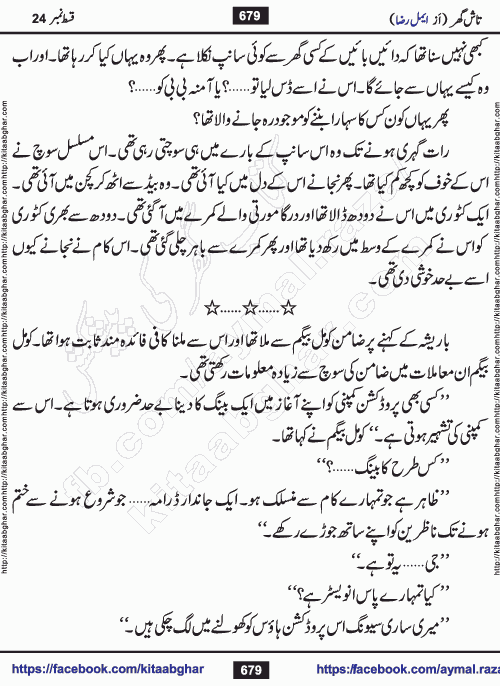 تاش گھر (از ایمل رضا) 679 قسط نمبر 24
کبھی نہیں سنا تھا کہ دائیں بائیں کے کسی گھر سے کوئی سانپ نکلا ہے۔ پھر وہ یہاں کیا کر رہا تھا۔ اور اب
وہ کیسے یہاں سے جائے گا۔ اس نے اسے ڈس لیا تو......؟ یا آمنہ بی بی کو......؟
پھر یہاں کون کس کا سہارا بننے کو موجود رہ جانے والا تھا؟
رات گہری ہونے تک وہ اس سانپ کے بارے میں ہی سوچتی رہی تھی۔ اس مسلسل سوچ نے
اس کے خوف کو کچھ کم کیا تھا۔ پھر نجانے اس کے دل میں کیا آئی تھی۔ وہ بیڈ سے اٹھ کر کچن میں آئی تھی۔
ایک کٹوری میں اس نے دودھ ڈالا تھا اور درگا مورتی والے کمرے میں آ گئی تھی۔ دودھ سے بھری کٹوری
کو اس نے کمرے کے وسط میں رکھ دیا تھا اور پھر کمرے سے باہر چلی گئی تھی۔ اس کام نے نجانے کیوں
اسے بے حد خوشی دی تھی۔
☆......☆......☆
باریشہ کے کہنے پر ضامن کومل بیگم سے ملا تھا اور اس سے ملنا کافی فائدہ مند ثابت ہوا تھا۔ کومل
بیگم ان معاملات میں ضامن کی سوچ سے زیادہ معلومات رکھتی تھی۔
’’کسی بھی پروڈکشن کمپنی کو اپنے آغاز میں ایک بینگ کا دینا بے حد ضروری ہوتا ہے۔ اس سے
کمپنی کی تشہیر ہوتی ہے۔‘‘ کومل بیگم نے کہا تھا۔
’’کس طرح کا بینگ......؟‘‘
’’ظاہر ہے جو تمہارے کام سے منسلک ہو۔ ایک جاندار ڈرامہ...... جو شروع ہونے سے ختم
ہونے تک ناظرین کو اپنے ساتھ جوڑے رکھے۔‘‘
’’جی...... یہ تو ہے۔‘‘
’’کیا تمہارے پاس انویسٹر ہے؟‘‘
’’میری ساری سیونگ اس پروڈکشن ہاؤس کو کھولنے میں لگ چکی ہیں۔‘‘
https://facebook.com/kitaabghar 679 https://facebook.com/aymal.raza